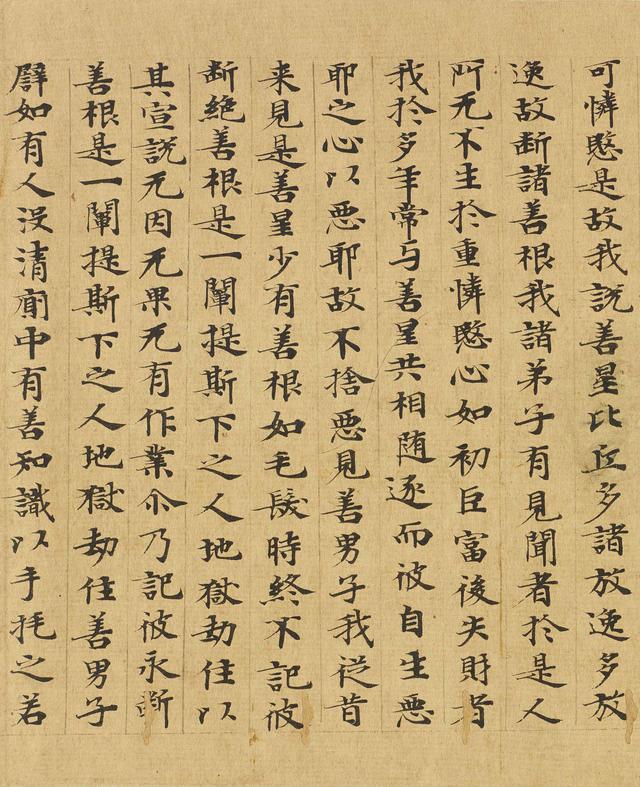 可憐愍是故我說善星比丘多諸放逸多放
逸故斷諸善根我諸弟子有見聞者於是人
所无不生於重憐愍心如初巨富後失財者
我於多年常与善星共相随逐而彼自生惡
耶之心以惡耶故不捨惡見善男子我従昔
来見是善星少有善根如毛髮時終不記彼
斷絶善根是一闡提斯下之人地獄劫住以
其宣說无因无果无有作業尒乃記彼永斷
善根是一闡提斯下之人地獄劫住善男子
譬如有人没清廁中有善知識以手㧌之若